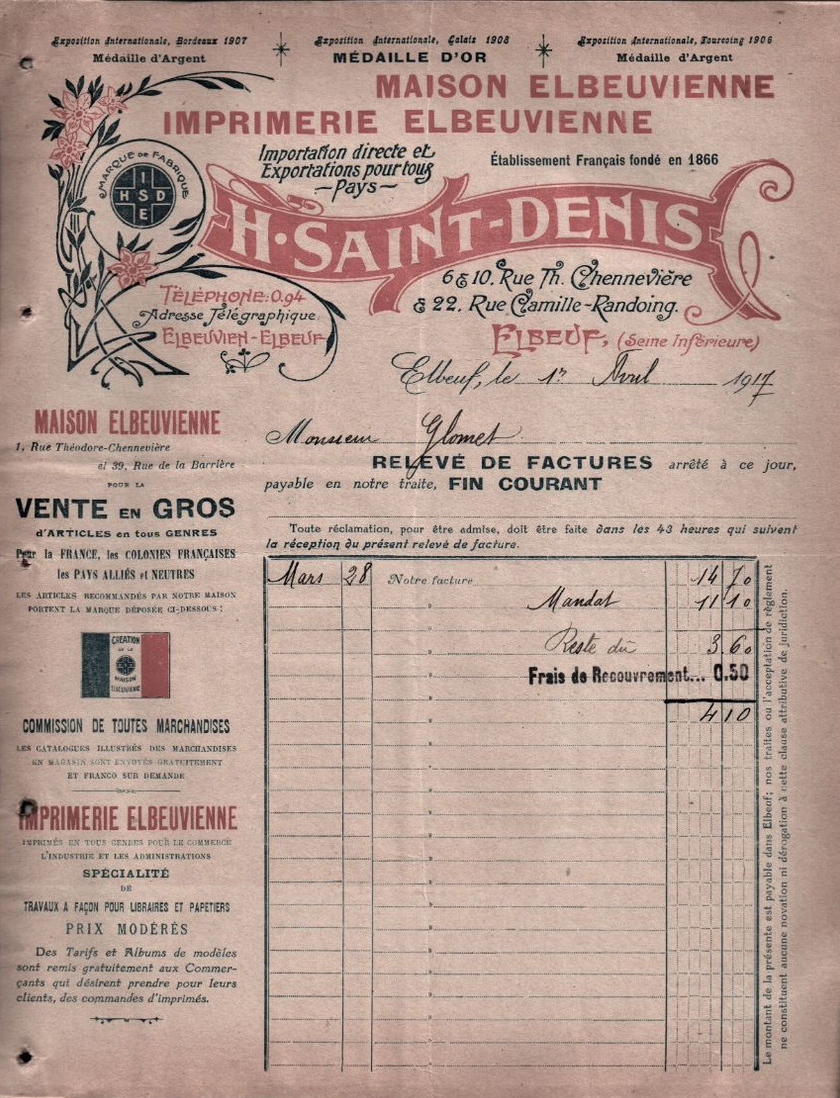 Exposition Internationale, Bordeaux 1907
Médaille d'Argent
Exposition Internationale, Calais 1908
MÉDAILLE D'OR
Exposition Internationale, Tourcoing 1906
Médaille d'Argent
MAISON ELBEUVIENNE
IMPRIMERIE ELBEUVIENNE
Importation directe et
Exportations pour tous
Pays
Établissement Français fondé en 1866
MARQUE DE FABRIQUE
I
H S D
E
H. SAINT-DENIS
6 & 10, Rue Th. Chennevière
& 22, Rue Camille-Randoing.
ELBEUF, (Seine Inférieure)
TÉLÉPHONE: 0.94
Adresse Télégraphique:
ELBEUVIEN-ELBEUF
Elbeuf, le 1er Avril 1917
Monsieur Glomet
RELEVÉ DE FACTURES arrêté à ce jour,
payable en notre traite, FIN COURANT
Toute réclamation, pour être admise, doit être faite dans les 43 heures qui suivent
la réception du présent relevé de facture.
Mars 28 Notre facture 14 70
" Mandat 11 10
Reste dû 3.60
Frais de Recouvrement... 0.50
4 10
Le montant de la présente est payable dans Elbeuf; nos traites ou l'acceptation de règlement
ne constituent aucune novation ni dérogation à cette clause attributive de juridiction.
MAISON ELBEUVIENNE
1, Rue Théodore-Chennevière
et 39, Rue de la Barrière
POUR LA
VENTE EN GROS
d'ARTICLES en tous GENRES
Pour la FRANCE, les COLONIES FRANÇAISES
les PAYS ALLIÉS et NEUTRES
LES ARTICLES RECOMMANDÉS PAR NOTRE MAISON
PORTENT LA MARQUE DÉPOSÉE CI-DESSOUS :
CRÉATION
DE LA
MAISON
ELBEUVIENNE
COMMISSION DE TOUTES MARCHANDISES
LES CATALOGUES ILLUSTRÉS DES MARCHANDISES
EN MAGASIN SONT ENVOYÉS GRATUITEMENT
ET FRANCO SUR DEMANDE
IMPRIMERIE ELBEUVIENNE
IMPRIMÉS EN TOUS GENRES POUR LE COMMERCE
L'INDUSTRIE ET LES ADMINISTRATIONS
SPÉCIALITÉ
DE
TRAVAUX A FAÇON POUR LIBRAIRES ET PAPETIERS
PRIX MODÉRÉS
Des Tarifs et Albums de modèles
sont remis gratuitement aux Commer-
çants qui désirent prendre pour leurs
clients, des commandes d'imprimés.